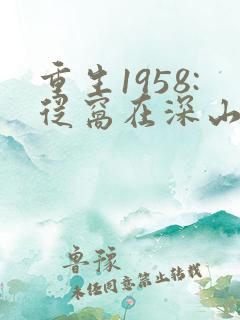 重生1958:
从窝在深山
鲁豫
未经同意禁止转载